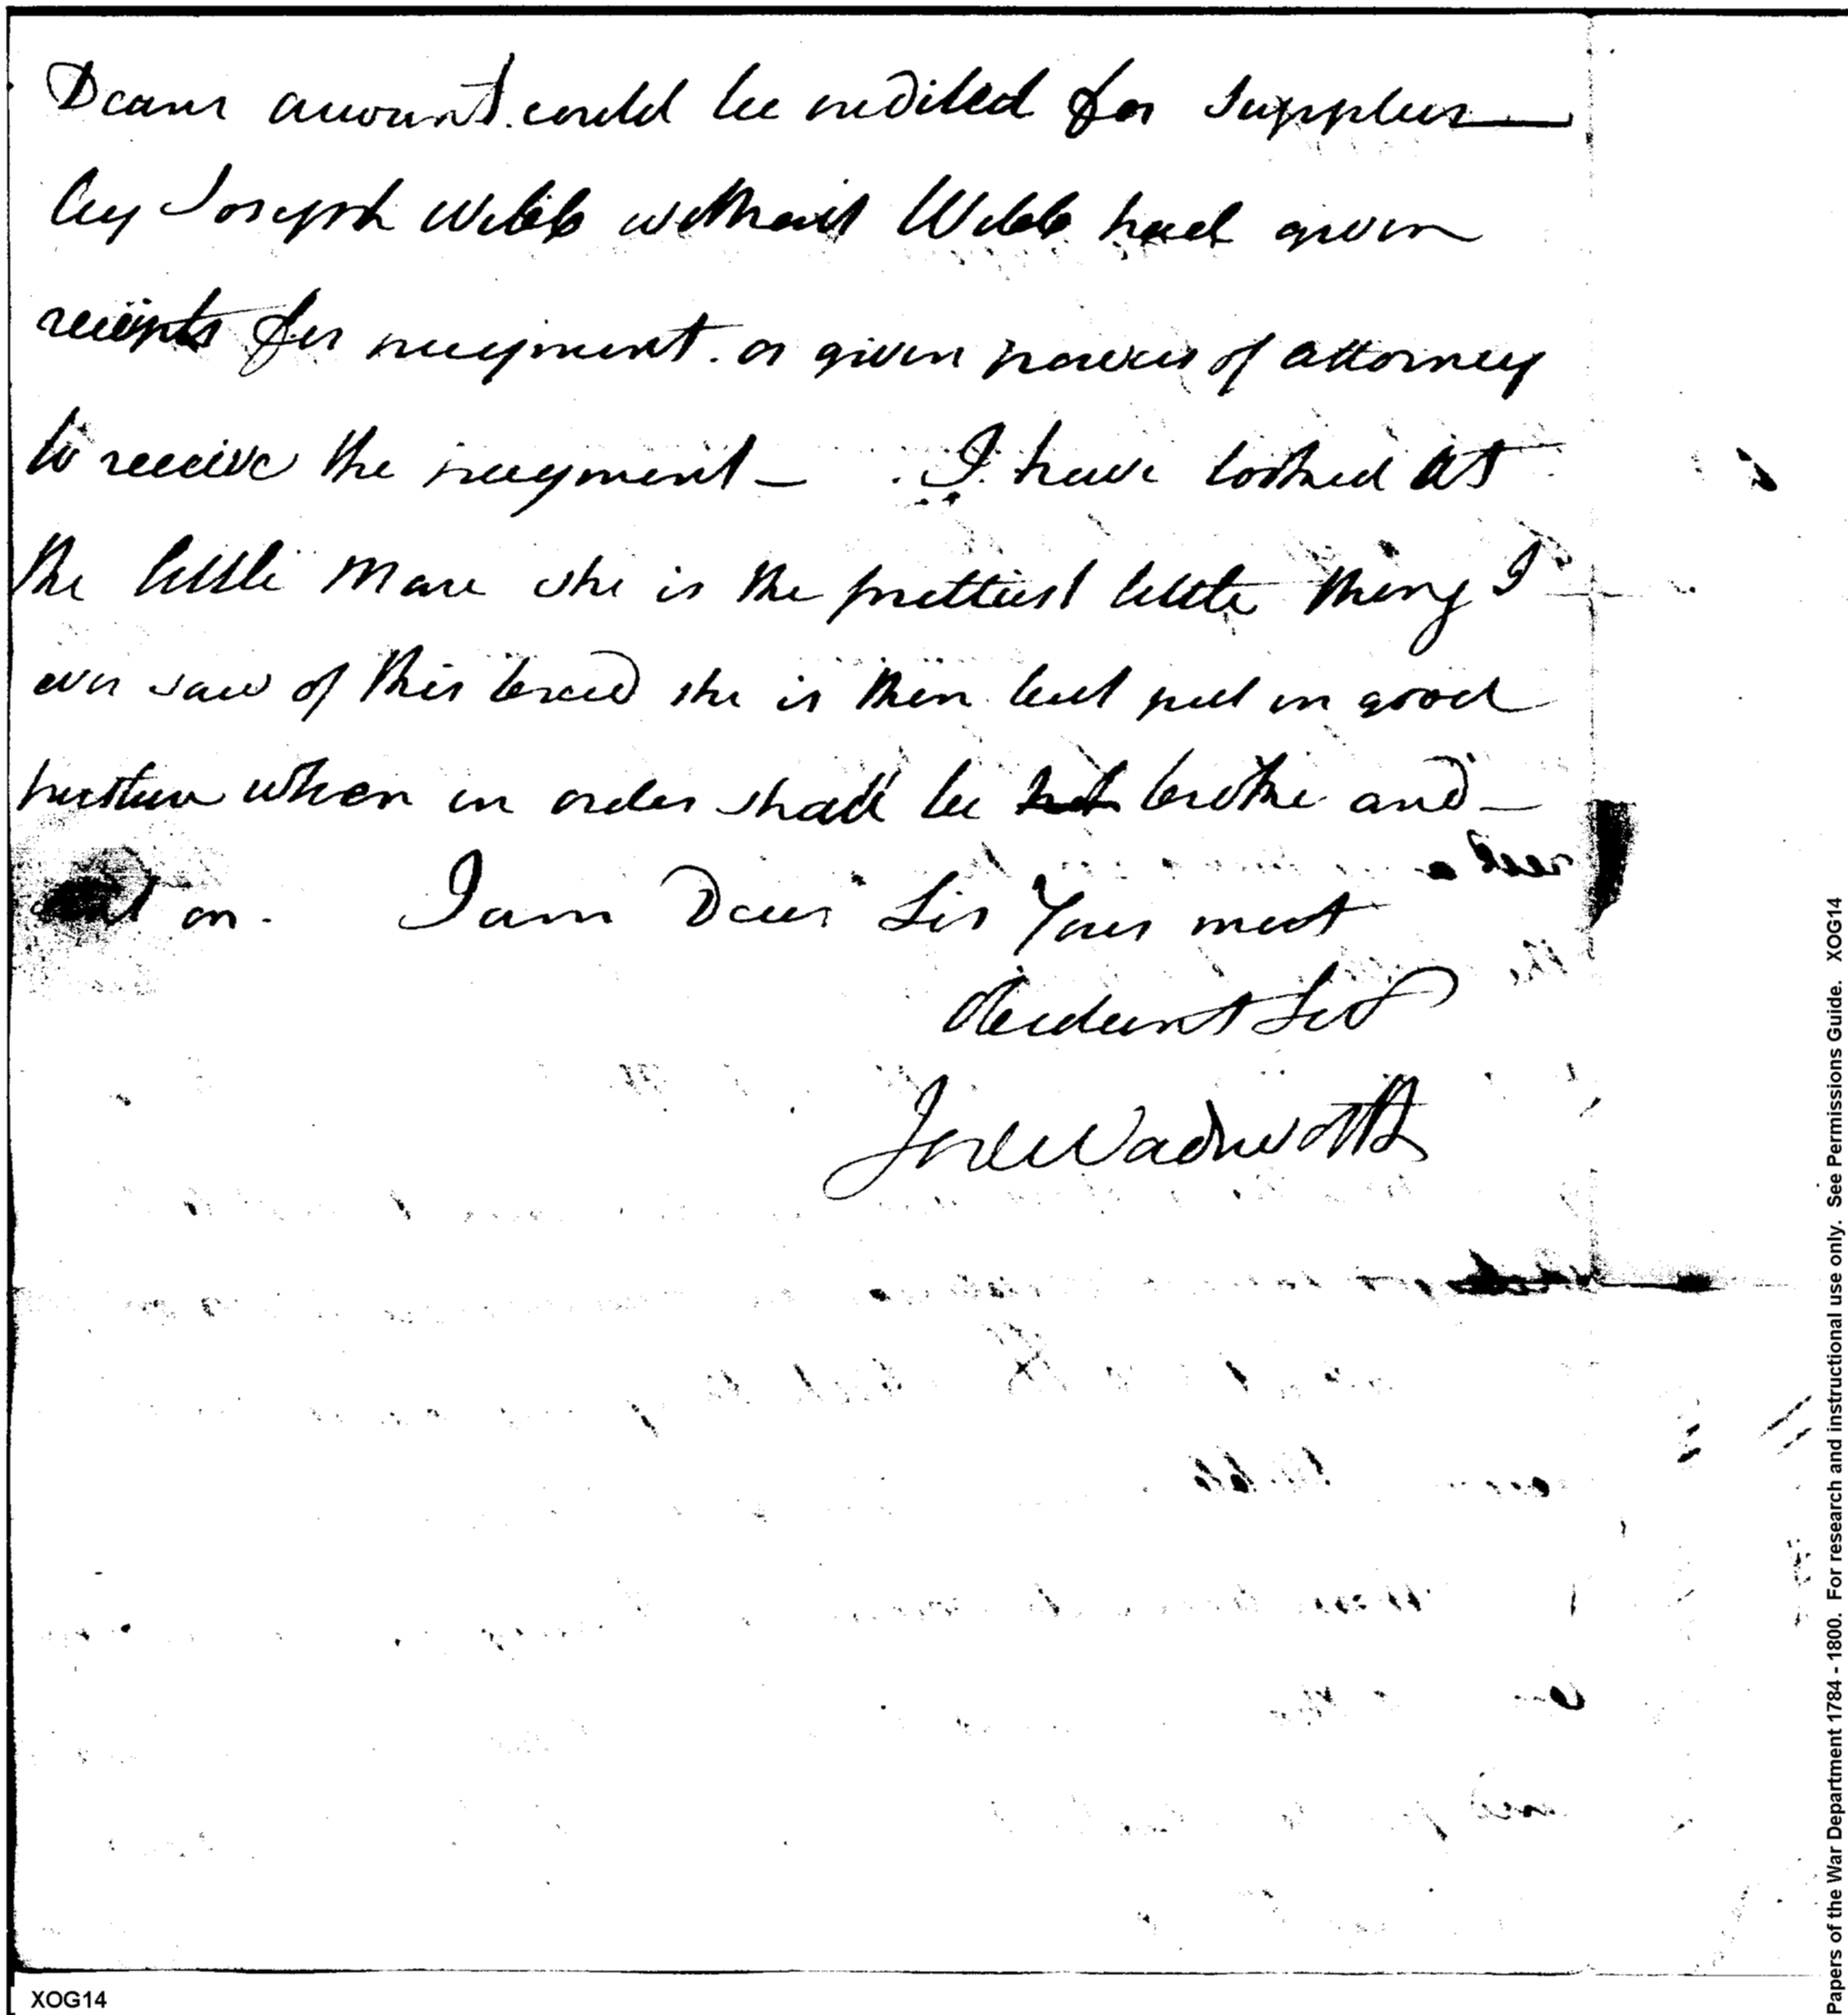 Deans account could be credited for Supplies
by Joseph Webb without Webb had given
receipts for payment. or given powers of attorney
to receive the payment - I have looked at
the little Mare she is the prettiest little thing I
ever saw of this breed she is thin but put in good
pasture when in order shall be broke and
on. I am Dear Sir Your most
Obedient Sert
Jere Wadsworth
XOG14
Papers of the War Department 1784 - 1800. For research and instructional use only. See Permissions Guide. XOG14